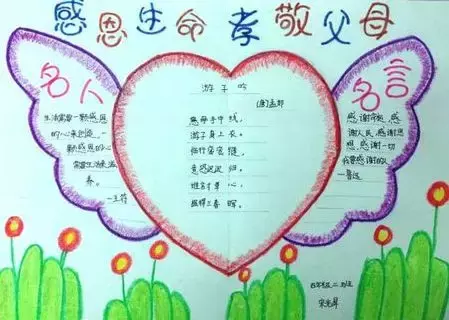 感恩生命 孝敬父母
名人
生活需要一颗感恩
的心来创造，一
颗感恩的心
需要生活来滋
养。
—王符
游子吟
孟郊
慈母手中线，
游子身上衣。
临行密密缝，
意恐迟迟归。
谁言寸草心，
报得三春晖。
名言
感谢命运，感
谢人民，感谢思
想，感谢一切
我要感谢的人
—鲁迅
四年级二班